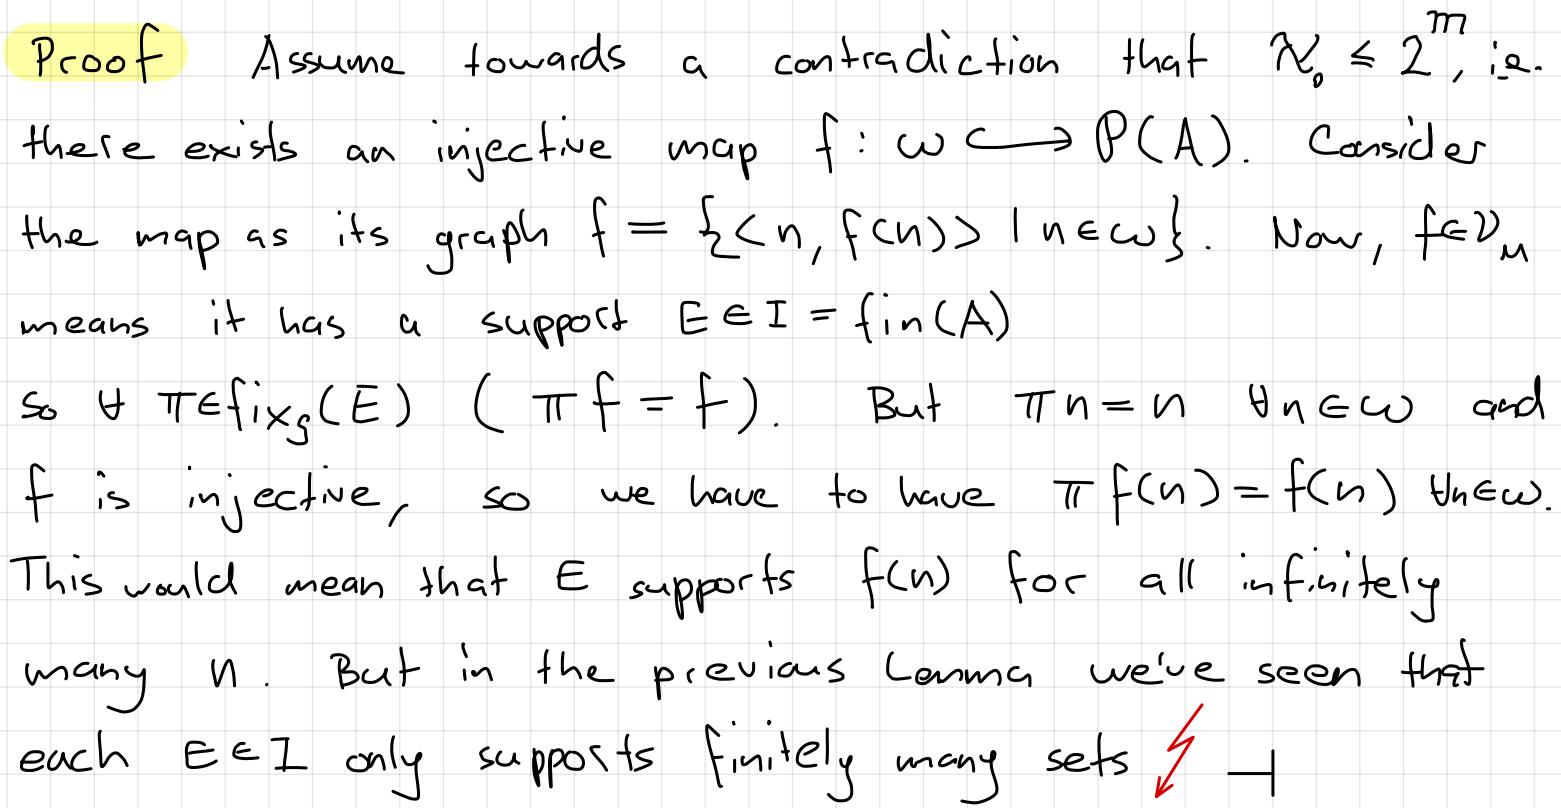 Proof Assume towards a contradiction that ℵ₀ ≤ 2^m, i.e.
there exists an injective map f : ω ↪ P(A). Consider
the map as its graph f = {<n, f(n)> | n ∈ ω}. Now, f ∈ V_M
means it has a support E ∈ I = fin(A)
so ∀ π ∈ fix_G(E) (πf = f). But πn = n ∀n ∈ ω and
f is injective, so we have to have π f(n) = f(n) ∀n ∈ ω.
This would mean that E supports f(n) for all infinitely
many n. But in the previous Lemma we've seen that
each E ∈ I only supports finitely many sets ↯ ⊣